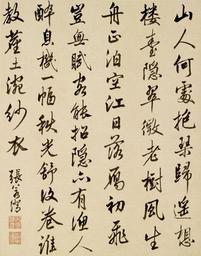 山人何處抱琴歸遙想
樓臺隱翠微老樹風生
舟正泊空江日落雁初飛
豈無賦客能招隱亦有漁人
解息機一幅秋光舒復卷誰
教塵土涴紗衣
張